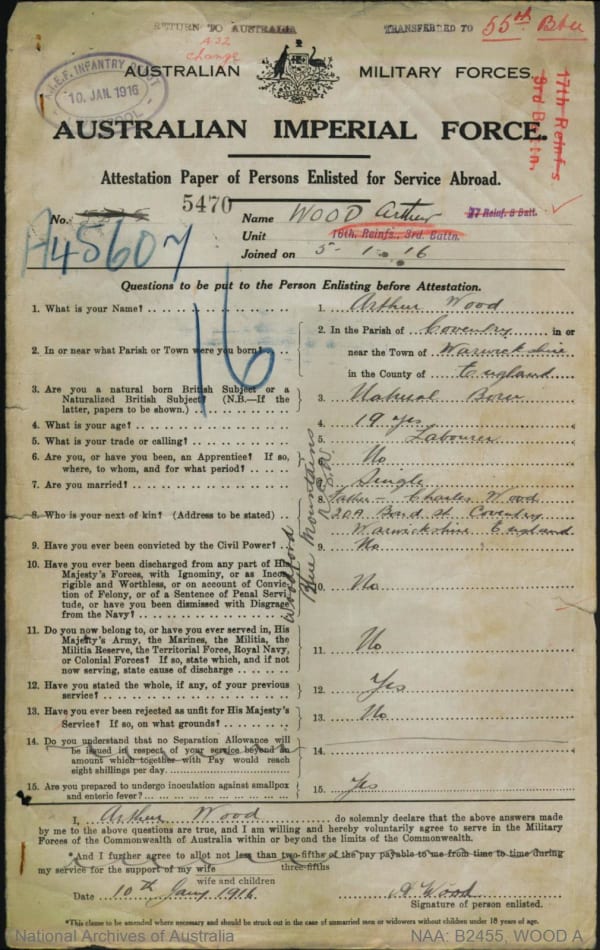 RETURN TO AUSTRALIA TRANSFERRED TO 55th Btn
A22
change
A.I.E.F. INFANTRY
10. JAN. 1916
AUSTRALIAN MILITARY FORCES.
AUSTRALIAN IMPERIAL FORCE.
17th Reinf-s
3rd Battn.
Attestation Paper of Persons Enlisted for Service Abroad.
No. 5470 Name WOOD Arthur
17 Reinf. 3 Batt.
A45607
Unit 16th. Reinfs., 3rd. Battn.
Joined on 5-1-16
16
Questions to be put to the Person Enlisting before Attestation.
1. What is your Name? 1. Arthur Wood
2. In or near what Parish or Town were you born? 2. In the Parish of Coventry in or
near the Town of Warwickshire
in the County of England
3. Are you a natural born British Subject or a
Naturalized British Subject? (N.B.—If the
latter, papers to be shown.) 3. Natural Born
4. What is your age? 4. 19 yrs
5. What is your trade or calling? 5. Labourer
6. Are you, or have you been, an Apprentice? If so,
where, to whom, and for what period? 6. No
7. Are you married? 7. Single
8. Who is your next of kin? (Address to be stated) 8. Father - Charles Wood
20A Bond St Coventry
Warwickshire England
Woodford
Blue Mountains
N.S.W.
9. Have you ever been convicted by the Civil Power? 9. No
10. Have you ever been discharged from any part of His
Majesty's Forces, with Ignominy, or as Incor-
rigible and Worthless, or on account of Convic-
tion of Felony, or of a Sentence of Penal Servi-
tude, or have you been dismissed with Disgrace
from the Navy? 10. No
11. Do you now belong to, or have you ever served in, His
Majesty's Army, the Marines, the Militia, the
Militia Reserve, the Territorial Force, Royal Navy,
or Colonial Forces? If so, state which, and if not
now serving, state cause of discharge 11. No
12. Have you stated the whole, if any, of your previous
service? 12. Yes
13. Have you ever been rejected as unfit for His Majesty's
Service? If so, on what grounds? 13. No
14. Do you understand that no Separation Allowance will
be issued in respect of your service beyond an
amount which together with Pay would reach
eight shillings per day. 14.
15. Are you prepared to undergo inoculation against smallpox
and enteric fever? 15. Yes
I, Arthur Wood do solemnly declare that the above answers made
by me to the above questions are true, and I am willing and hereby voluntarily agree to serve in the Military
Forces of the Commonwealth of Australia within or beyond the limits of the Commonwealth.
*And I further agree to allot not less than two-fifths of the pay payable to me from time to time during
three-fifths
my service for the support of my wife
wife and children
Date 10th Jany 1916. A Wood
Signature of person enlisted.
*This clause to be amended where necessary and should be struck out in the case of unmarried men or widowers without children under 18 years of age.
National Archives of Australia NAA: B2455, WOOD A